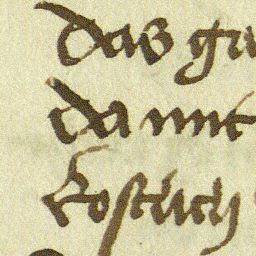 das gu
da mit
kostlich